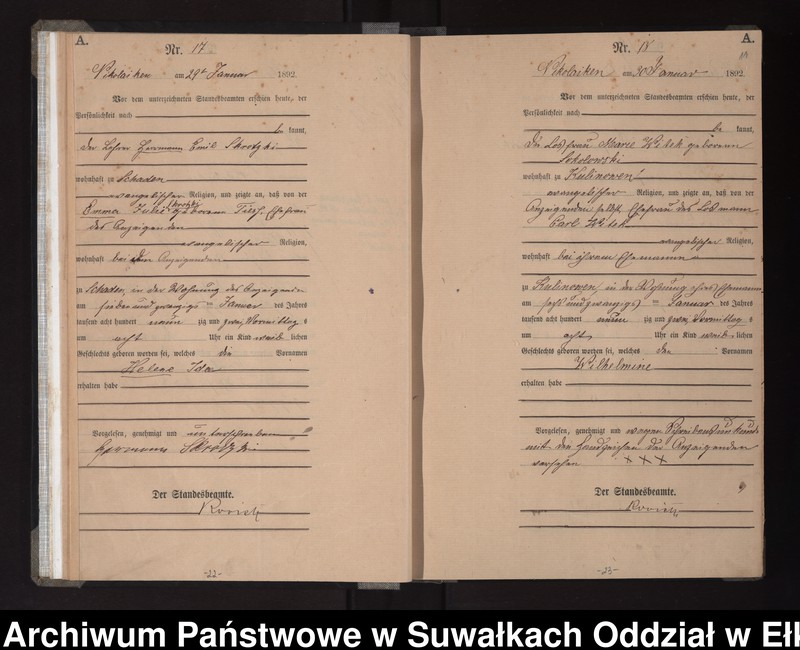 A.
Nr. 17
Nikolaiken am 29t Januar 1892.
Vor dem unterzeichneten Standesbeamten erschien heute, der
Persönlichkeit nach
be kannt,
der Lehrer Hermann Emil Skrotzki
wohnhaft zu Schaden
evangelischer Religion, und zeigte an, daß von der
Skrotzki
Emma geborenen Ehefrau
des Anzeigenden
evangelischer Religion,
wohnhaft bei dem Anzeigenden
zu Schaden, in der Wohnung des Anzeigenden
am sieben und zwanzigsten Januar des Jahres
tausend acht hundert neun zig und zwei, Vormittags
um acht Uhr ein Kind weib lichen
Geschlechts geboren worden sei, welches die Vornamen
Helene Ida
erhalten habe
Vorgelesen, genehmigt und unterschrieben
Hermann Skrotzki
Der Standesbeamte.
-22-
A.
Nr. 18
Nikolaiken am 30 Januar 1892.
Vor dem unterzeichneten Standesbeamten erschien heute, der
Persönlichkeit nach
be kannt,
die Losfrau Marie Witek geborene
Sokolowski
wohnhaft zu Kulinowen
evangelischer Religion, und zeigte an, daß von der
Anzeigenden selbst, Ehefrau des Losmann
Carl Witek
evangelischer Religion,
wohnhaft bei ihrem Ehemanne
zu Kulinowen, in der Wohnung ihres Ehemannes
am sechs und zwanzigsten Januar des Jahres
tausend acht hundert neun zig und zwei, Vormittags
um acht Uhr ein Kind weib lichen
Geschlechts geboren worden sei, welches den Vornamen
Wilhelmine
erhalten habe
Vorgelesen, genehmigt und wegen Schreibensunkunde
mit den Handzeichen der Anzeigenden
versehen XXX
Der Standesbeamte.
-23-
Archiwum Państwowe w Suwałkach Oddział w Ełk